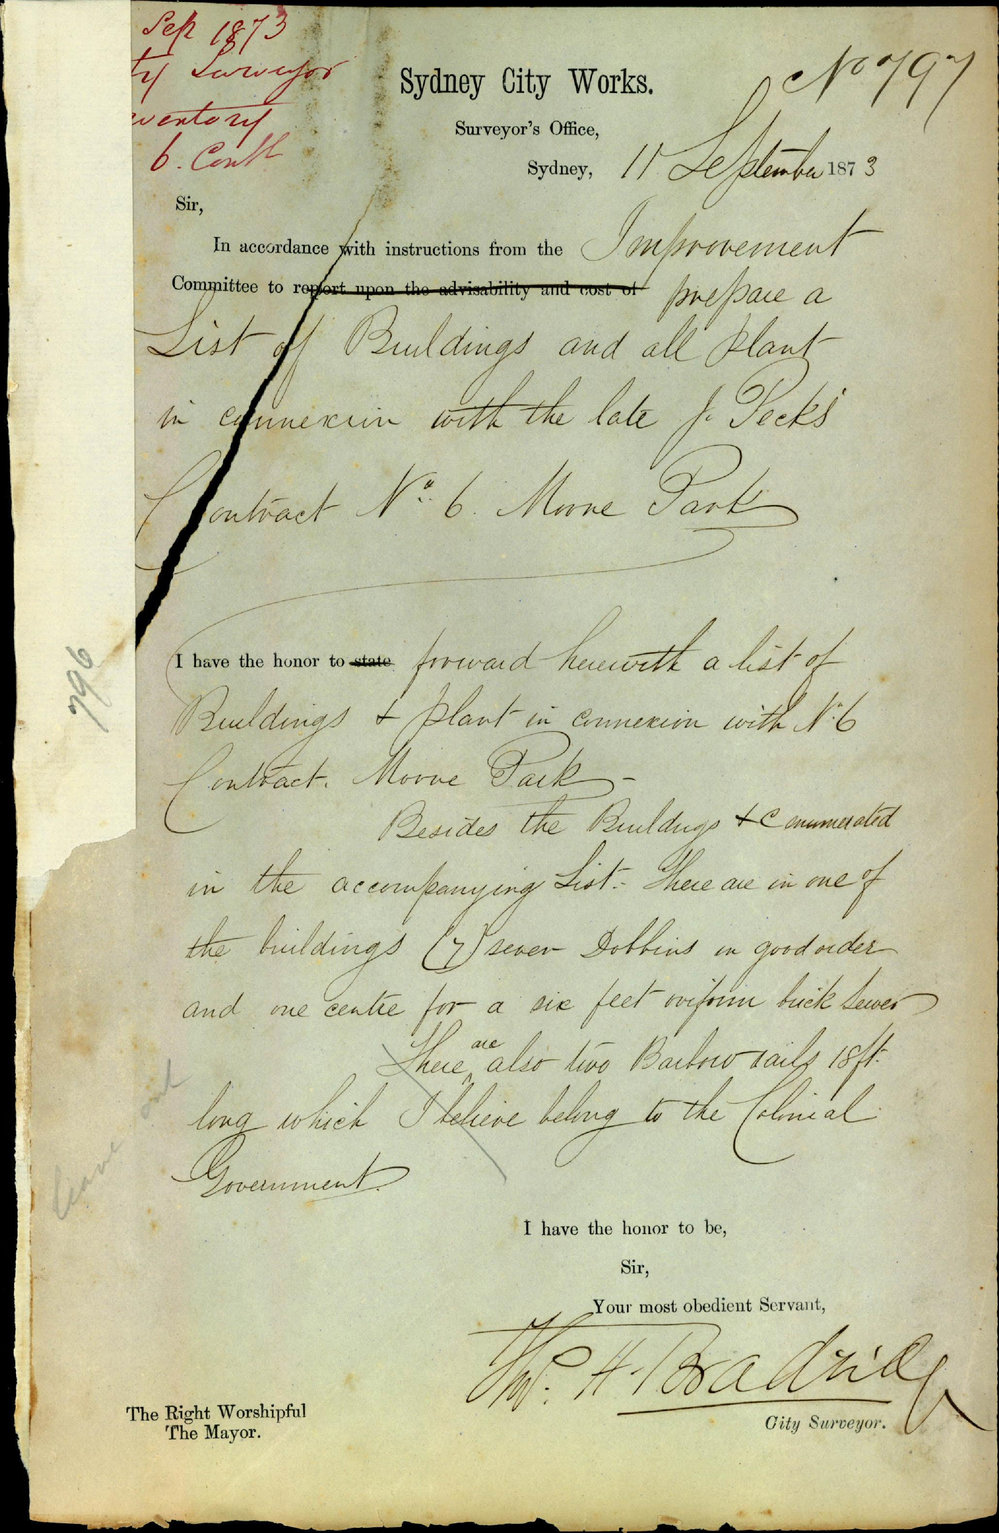 Sep 1873
ty Surveyor
ventory
6. Contt
No 797
Sydney City Works.
Surveyor's Office,
Sydney, 11 September 1873
Sir,
In accordance with instructions from the Improvement
Committee to report upon the advisability and cost of prepare a
List of Buildings and all plant
in connexion with the late J. Pecks'
Contract No. 6. Moore Park
796
I have the honor to state forward herewith a list of
Buildings & plant in connexion with No 6
Contract. Moore Park -
Besides the Buildings &c enumerated
in the accompanying List - There are in one of
the buildings (7) seven Dobbins in good order
and one centre for a six feet oviform brick sewer
There are also two Barlow rails 18ft
long which I believe belong to the Colonial
Government.
leave out
I have the honor to be,
Sir,
Your most obedient Servant,
Thos. H. Bradridge
City Surveyor.
The Right Worshipful
The Mayor.